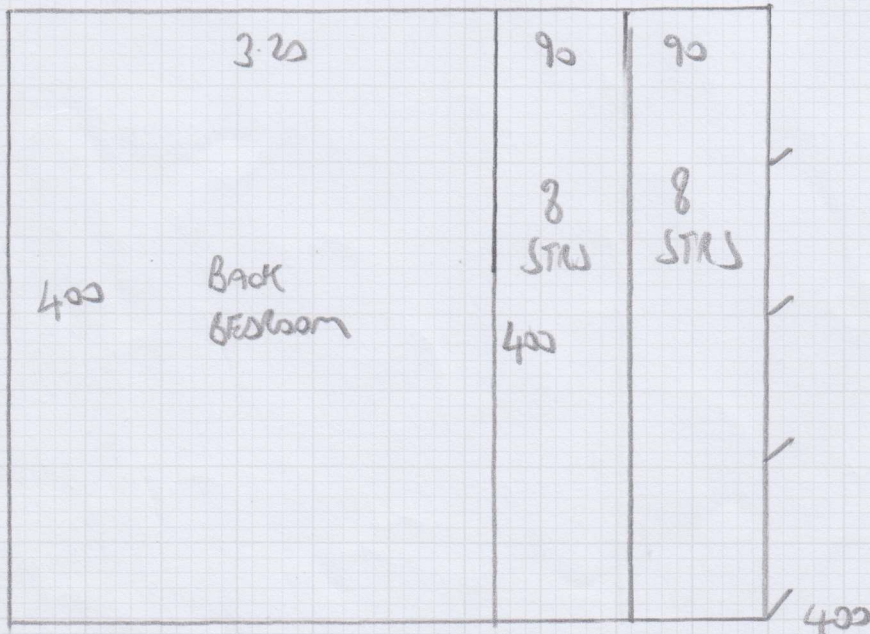 3.20
90
90
8
STRS
8
STRS
400
BACK
BEDROOM
400
400